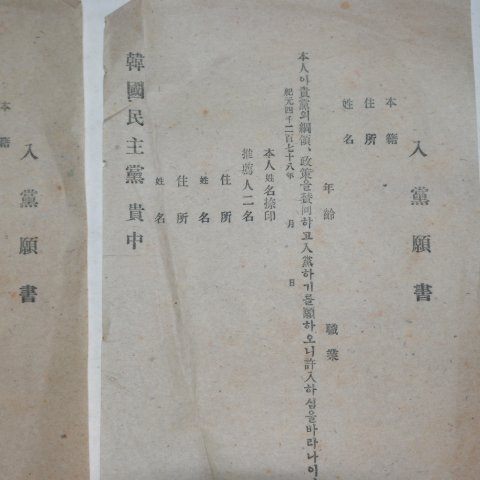 入黨願書
本籍
住所
姓名
年齡
職業
本人이貴黨의綱領、政策을贊同하고入黨하기를願하오니許入하심을바라나이
紀元四千二百七十八年 月 日
本人姓名捺印
推薦人二名
住所
姓名
住所
姓名
韓國民主黨 貴中
入黨願書
本籍